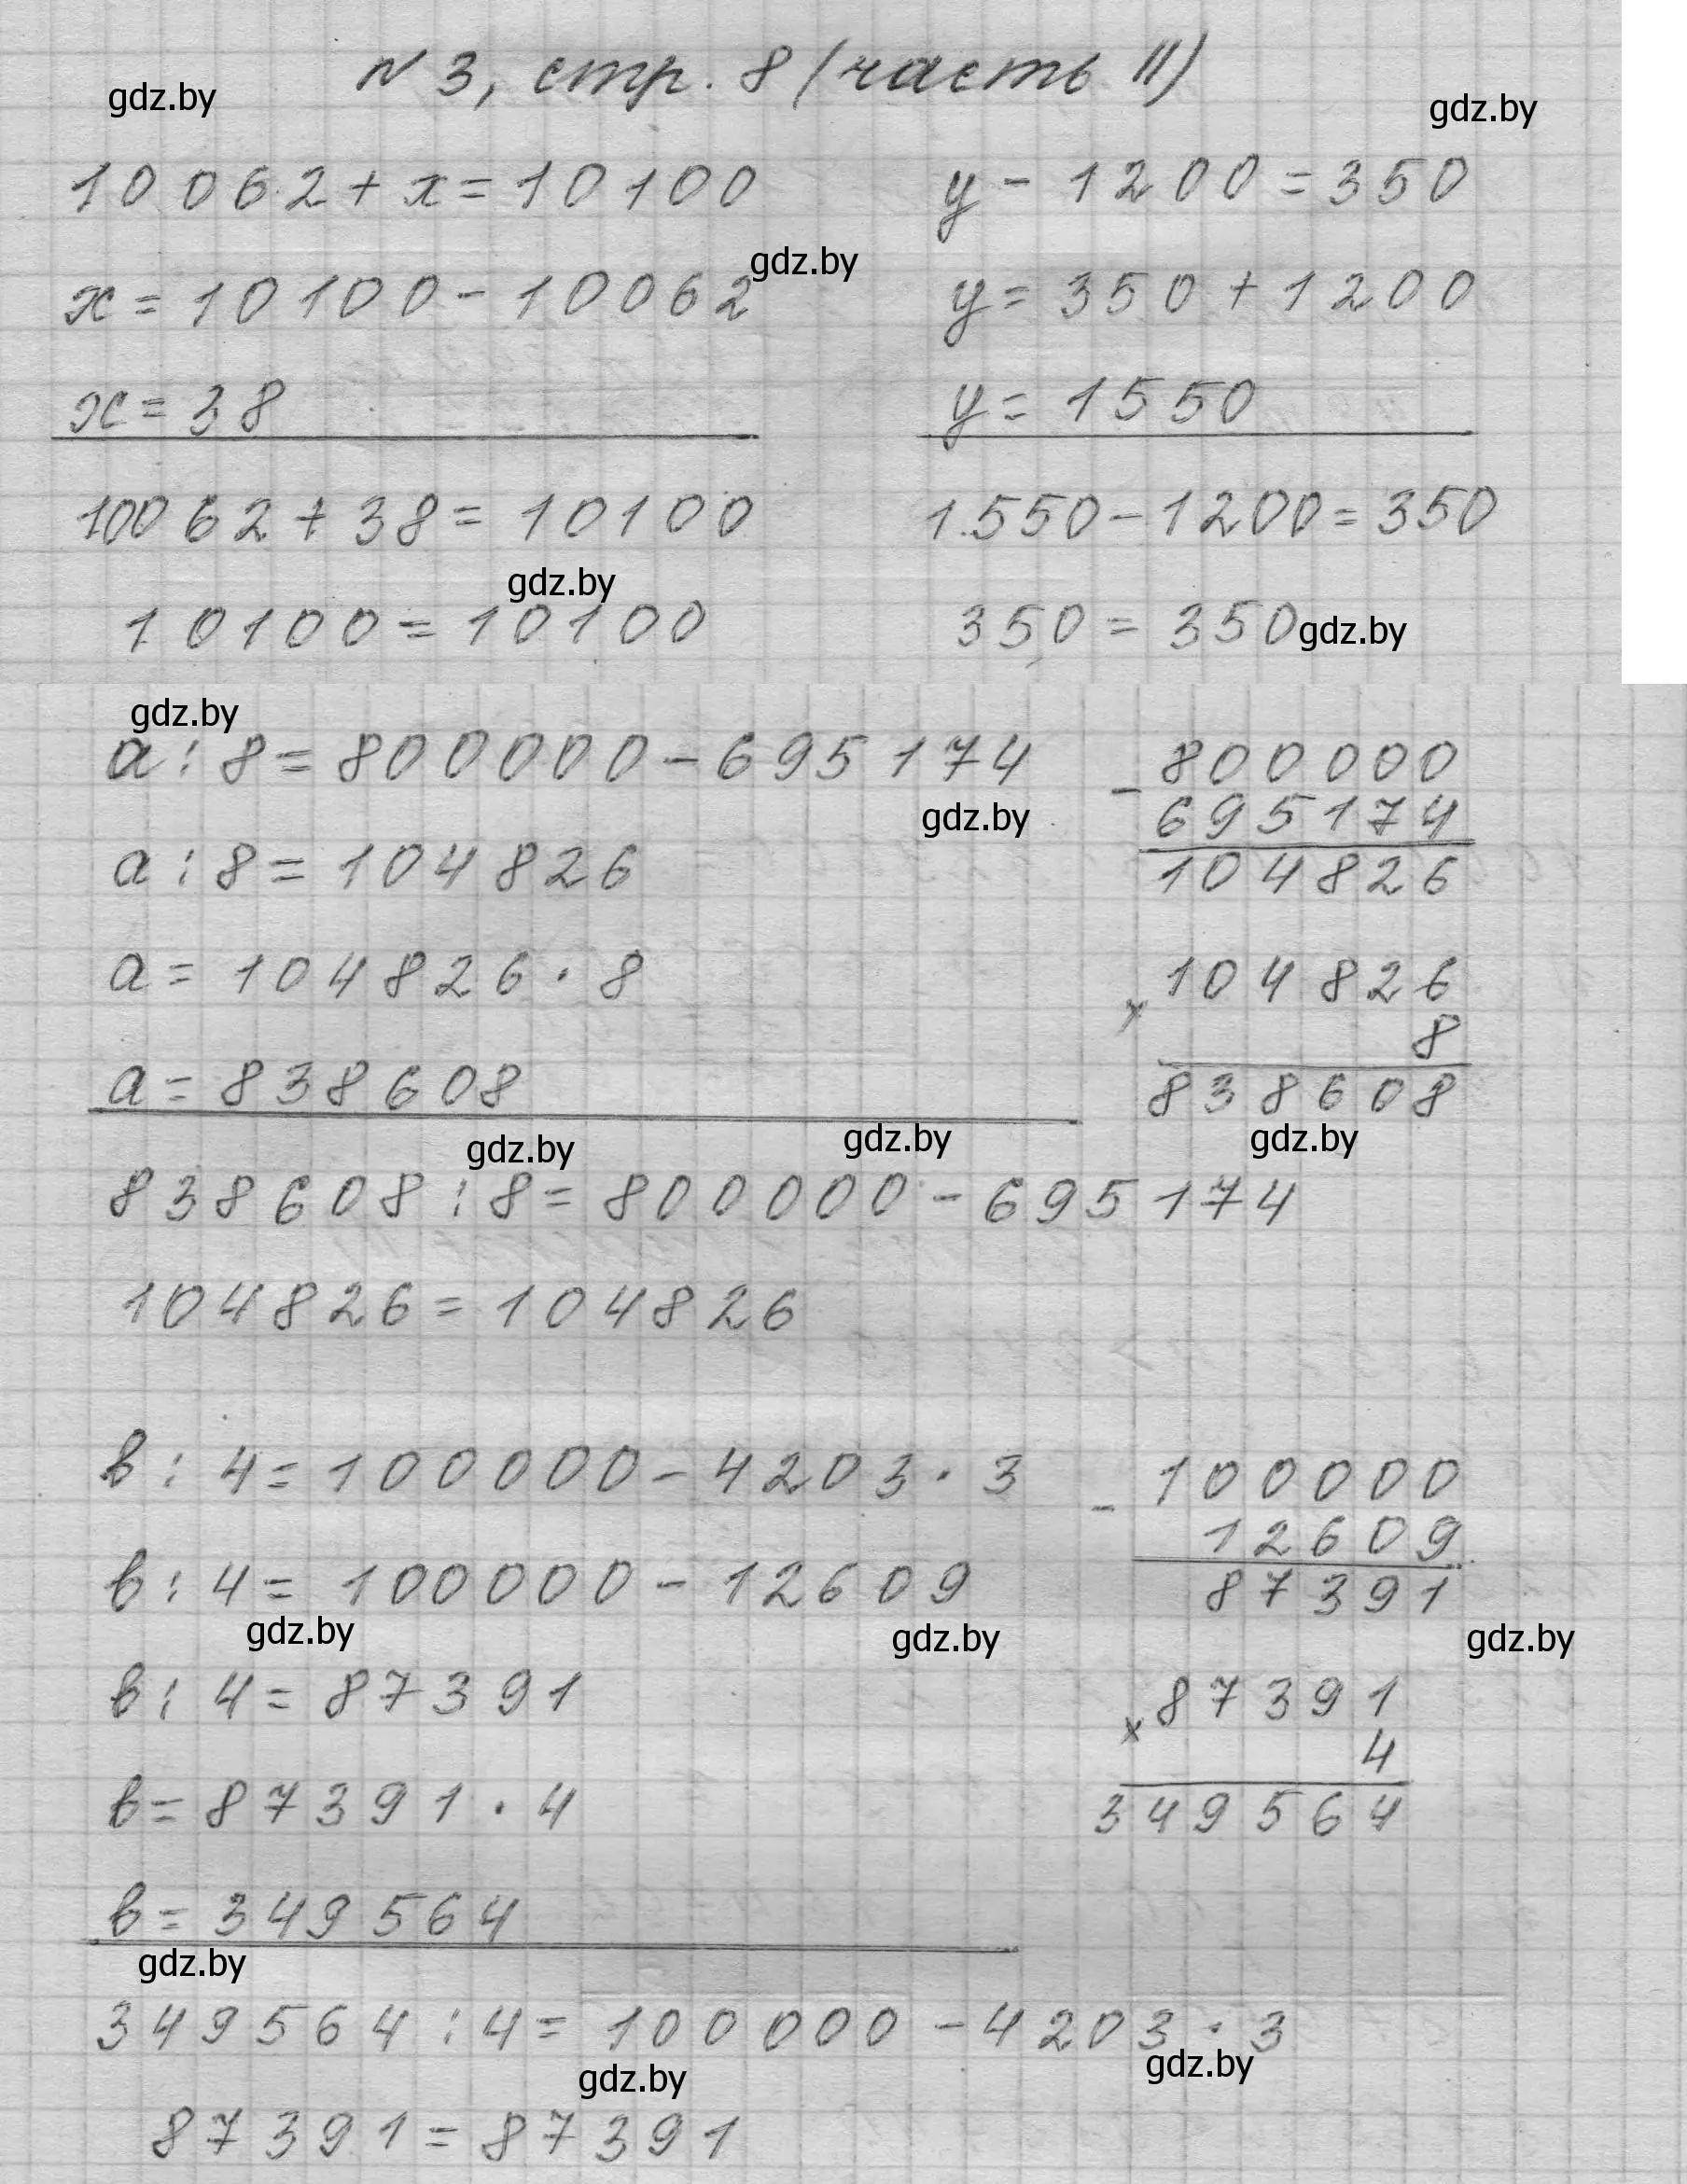 № 3, стр. 8 (часть II)
gdz.by
gdz.by
10062 + x = 10100
y - 1200 = 350
gdz.by
x = 10100 - 10062
y = 350 + 1200
x = 38
y = 1550
10062 + 38 = 10100
1550 - 1200 = 350
gdz.by
10100 = 10100
350 = 350
gdz.by
gdz.by
a : 8 = 800000 - 695174
gdz.by
a : 8 = 104826
a = 104826 · 8
a = 838608
- 800000
695174
104826
x 104826
8
838608
gdz.by
gdz.by
gdz.by
838608 : 8 = 800000 - 695174
104826 = 104826
в : 4 = 100000 - 4203 · 3
в : 4 = 100000 - 12609
gdz.by
gdz.by
в : 4 = 87391
в = 87391 · 4
в = 349564
- 100000
12609
87391
gdz.by
x 87391
4
349564
gdz.by
349564 : 4 = 100000 - 4203 · 3
gdz.by
gdz.by
87391 = 87391